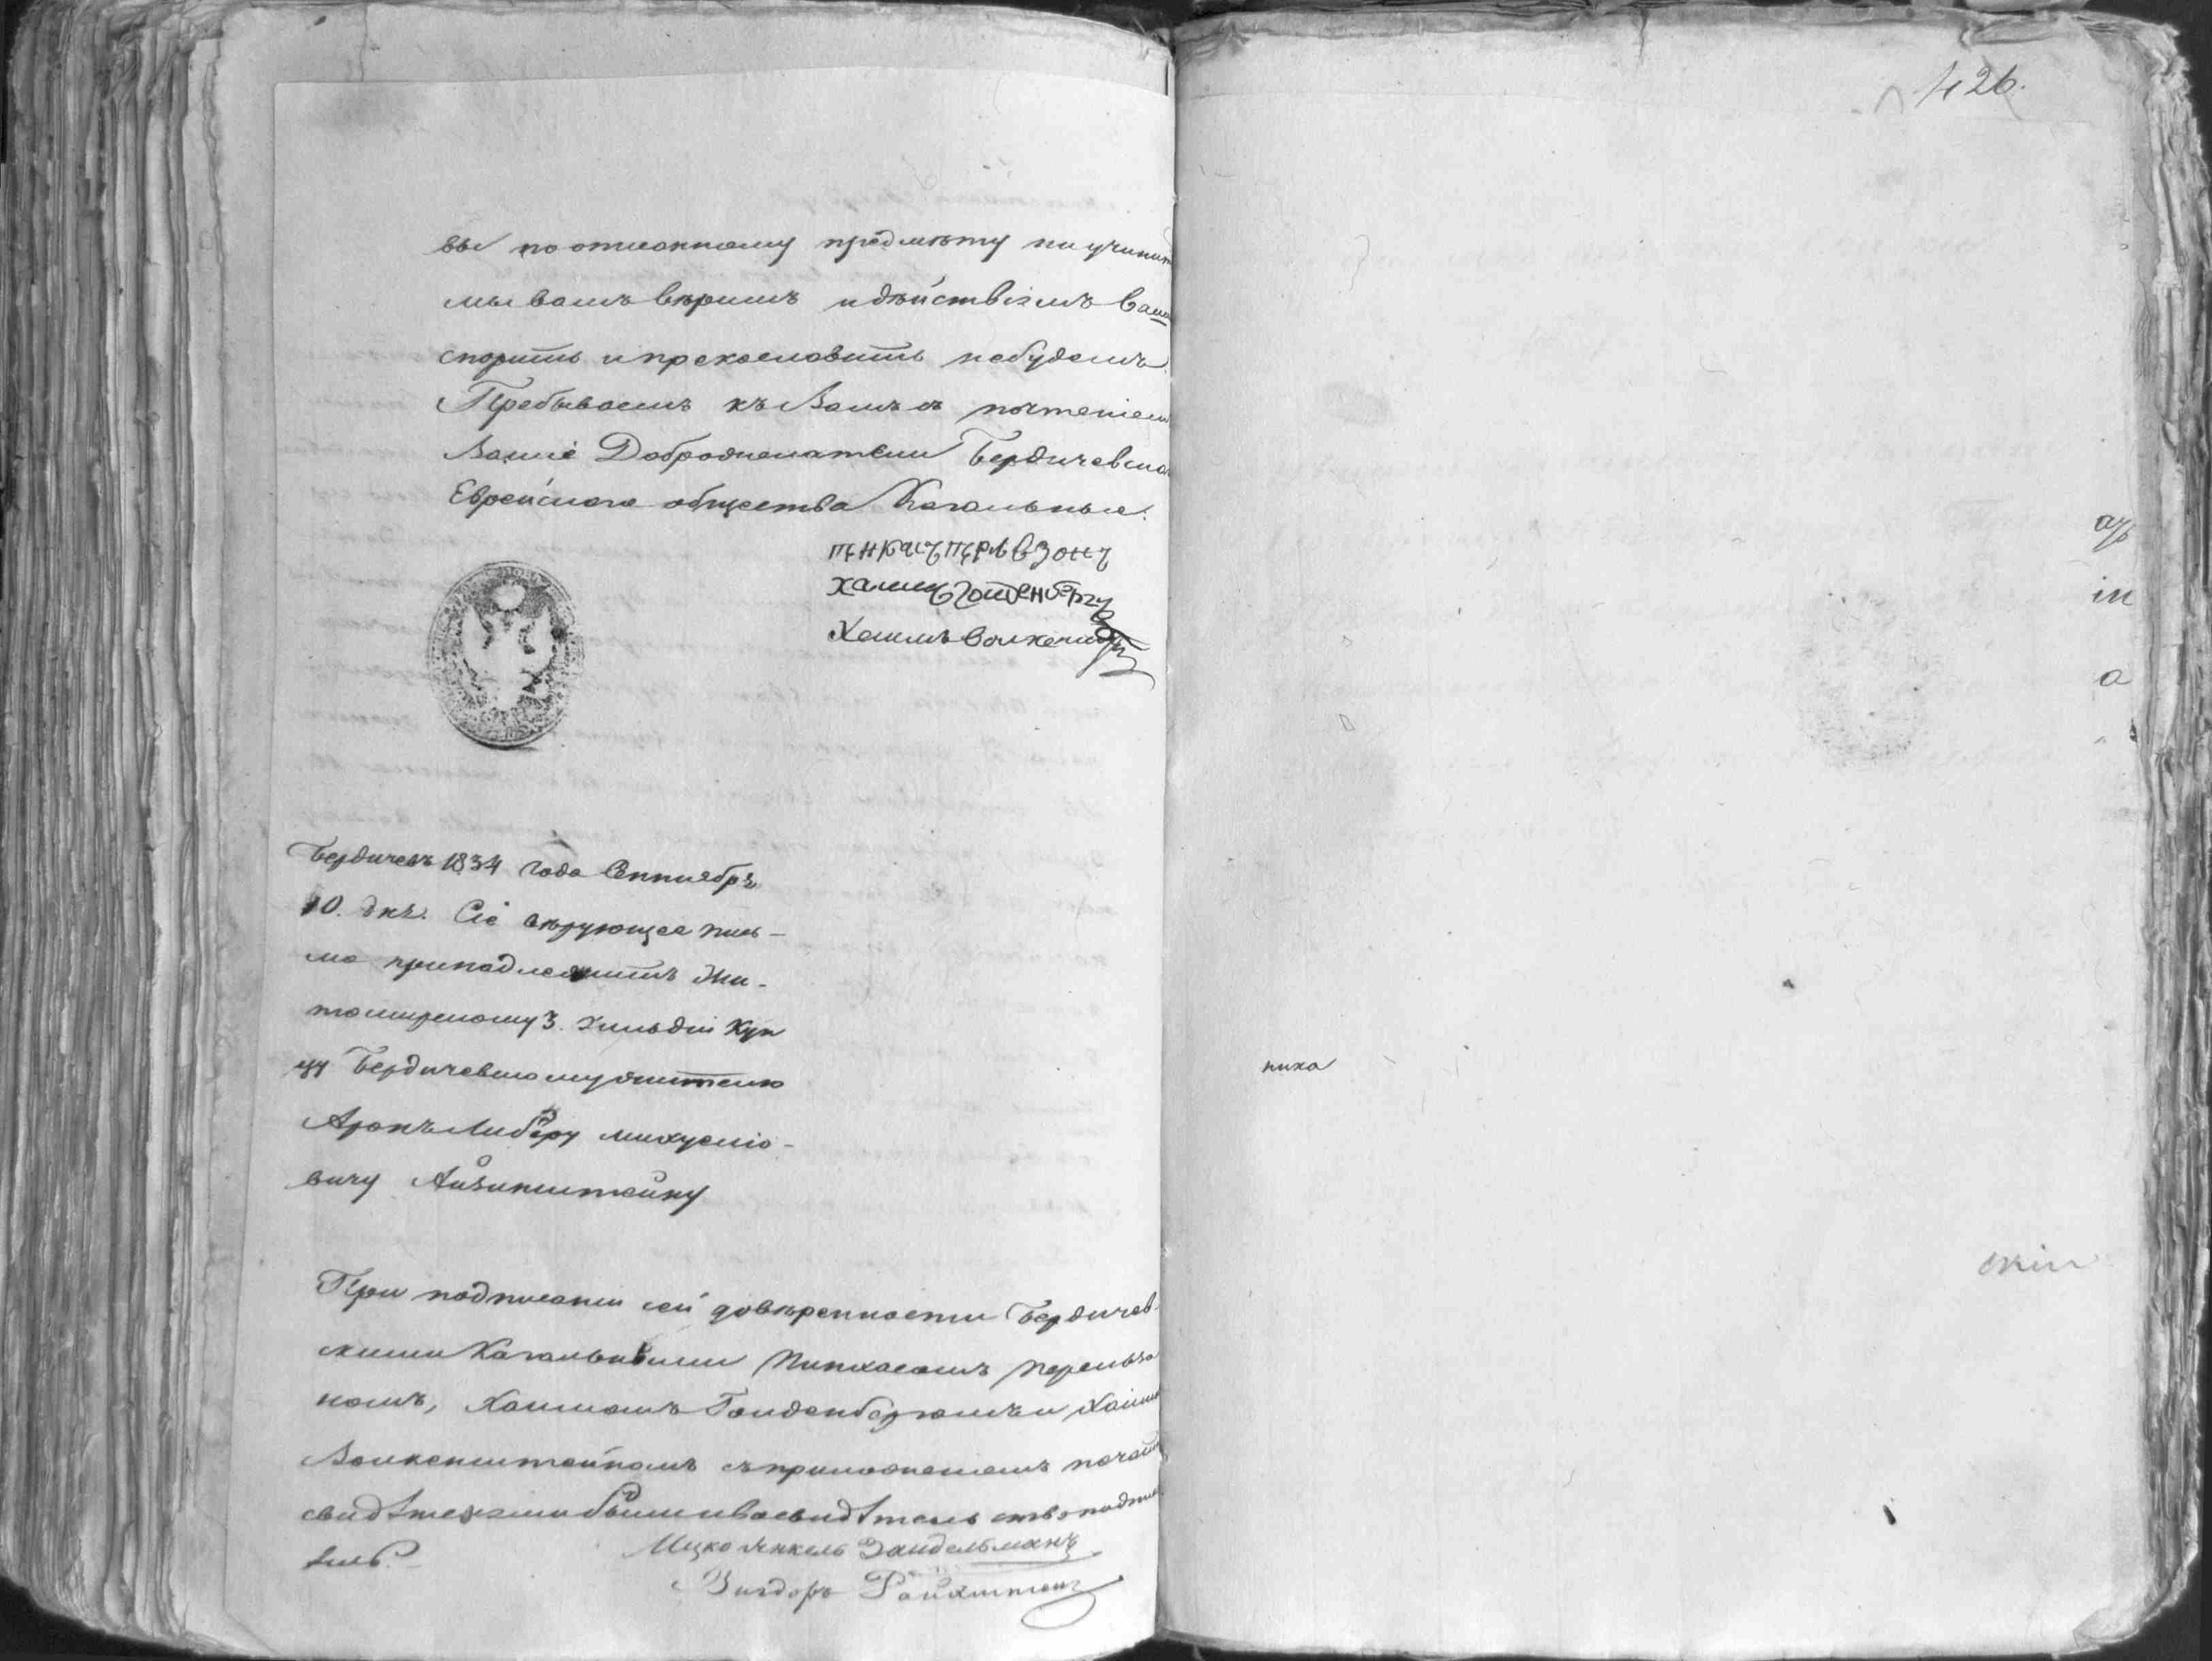 426.
вы по отмсанному предмѣту ни учинит
мы вамъ вѣримъ и дѣйствіямъ Ваш
спорить и прекословить небудемъ.
Пребываемъ къ Вамъ съ почтеніем
Вашіе Доброжелатели Бердичевска
Еврейскаго общества Кагальные.
Хаимъ Голденбергъ
Хаимъ Волкенш
Бердичевъ 1834 года Сентября
10. дня. Сіе вѣрующее пись-
мо принадлежитъ Жи-
томирскому 3. гильдіи куп
цу Бердичевскому жителю
Аронъ Либеру
вичу Айзинштейну
При подписаніи сей довѣренности Бердичев-
скими Кагальными Пинхасомъ Перельзо
номъ, Хаимомъ Голденбергомъ и Хаимо
Волкенштейномъ съ приложеніемъ печати
свидѣтелями были и во свидѣтельство подпис
Ицко Янкель Зайдельманъ
Вигдоръ
ниха